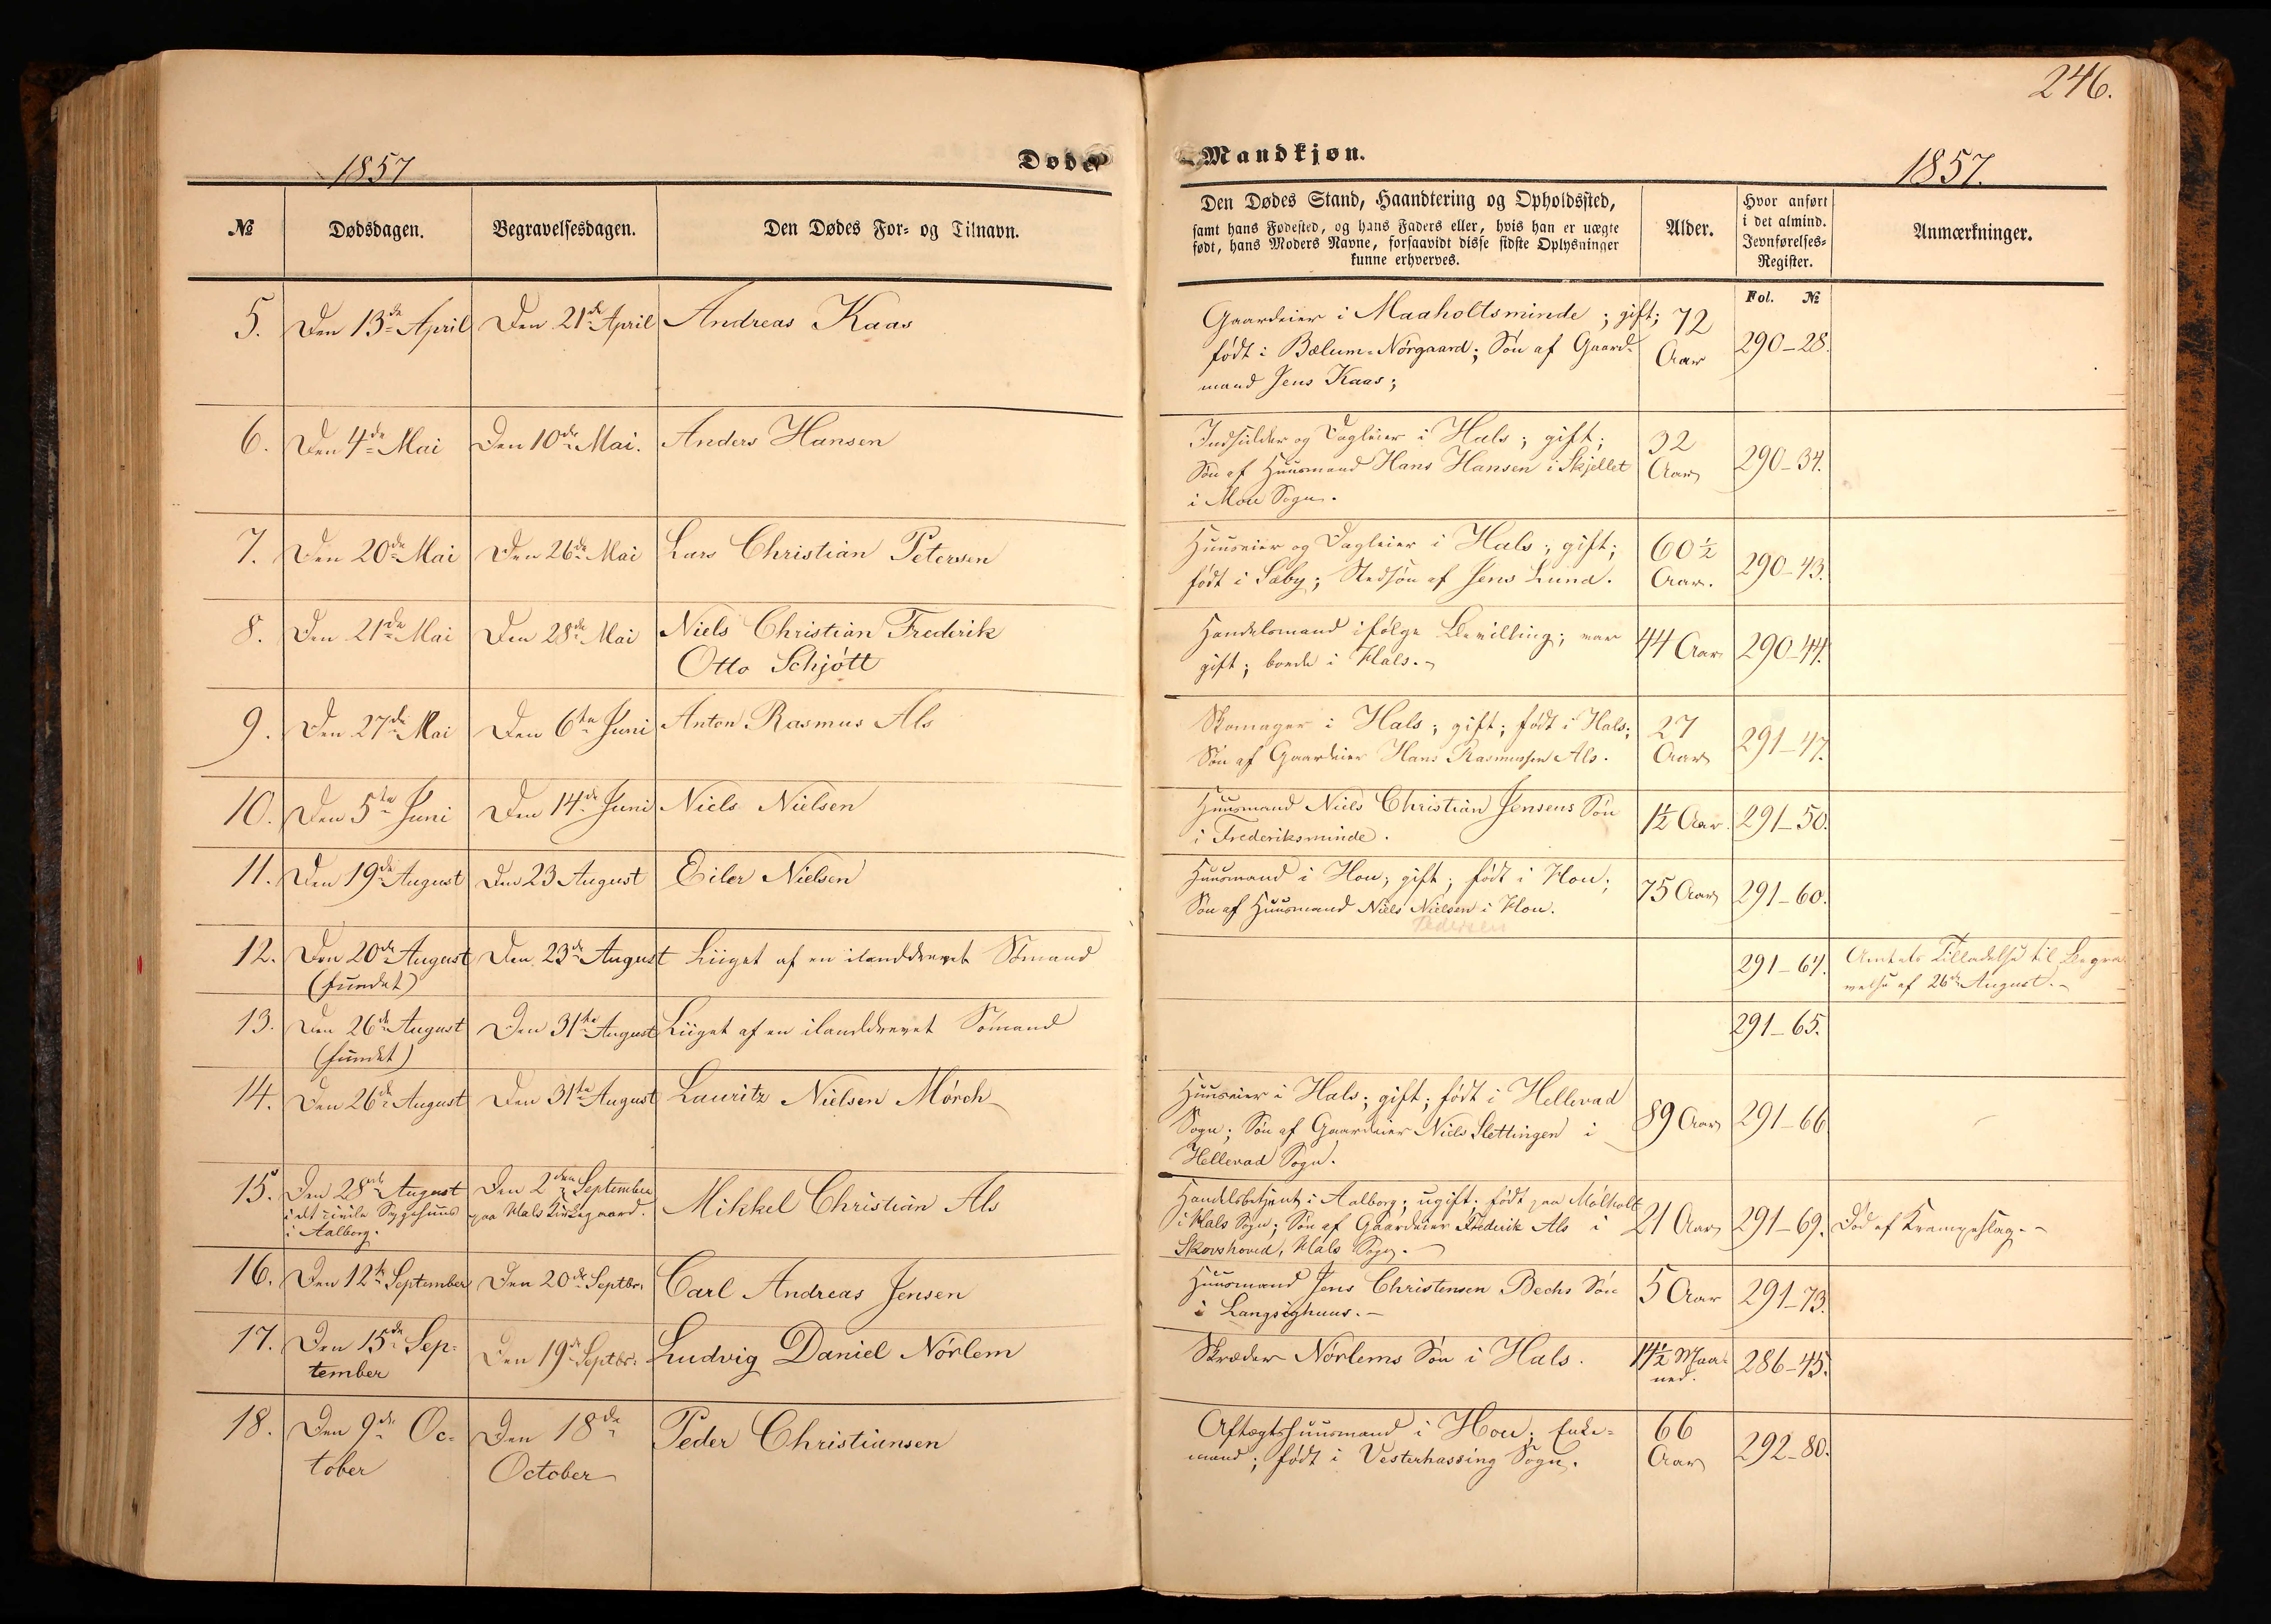 246.
1857
Døde
Mandkjøn.
1857.
№
Dødsdagen.
Begravelsesdagen.
Den Dødes For- og Tilnavn.
Den Dødes Stand, Haandtering og Opholdssted,
samt hans Fødested, og hans Faders eller, hvis han er uægte
født, hans Moders Navne, forsaavidt disse sidste Oplysninger
kunne erhverves.
Alder.
Hvor anført
i det almind.
Jevnførelses-
Register.
Anmærkninger.
Fol. №
5. Den 13de April Den 21de April Andreas Kaas
Gaardeier i Maaholtsminde; gift;
født i Bælum-Nørgaard; Søn af Gaard-
mand Jens Kaas;
72
Aar
290-28.
6. Den 4de Mai Den 10de Mai. Anders Hansen
Indsidder og Dagleier i Hals; gift;
Søn af Huusmand Hans Hansen i Skjellet
i Mou Sogn.
32
Aar
290-34.
7. Den 20de Mai Den 26de Mai Lars Christian Petersen
Huuseier og Dagleier i Hals; gift;
født i Sæby; Stedsøn af Jens Lund.
60½
Aar.
290-43.
8. Den 21de Mai Den 28de Mai Niels Christian Frederik
Otto Schjøtt
Handelsmand ifølge Bevilling; var
gift; boede i Hals.
44 Aar
290-44.
9. Den 27de Mai Den 6te Juni Anton Rasmus Als
Skomager i Hals; gift; født i Hals;
Søn af Gaardeier Hans Rasmussen Als.
27
Aar
291-47.
10. Den 5te Juni Den 14de Juni Niels Nielsen
Huusmand Niels Christian Jensens Søn
i Frederiksminde.
1½ Aar.
291-50.
11. Den 19de August Den 23 August Eiler Nielsen
Huusmand i Hou; gift; født i Hou;
Søn af Huusmand Niels Nielsen i Hou.
Pedersen
75 Aar
291-60.
12. Den 20de August Den 23de August Liiget af en ilanddrevet Sømand
(fundet)
291-64.
Amtets Tilladelse til Begra-
velse af 26de August.
13. Den 26de August Den 31te August Liiget af en ilanddrevet Sømand
(fundet)
291-65.
14. Den 26de August Den 31te August Lauritz Nielsen Mørch
Huuseier i Hals; gift; født i Hellevad
Sogn; Søn af Gaardeier Niels Slettingen i
Hellevad Sogn.
89 Aar
291-66
15. Den 28de August Den 2den September Mikkel Christian Als
i det civile Sygehuus paa Hals Kirkegaard.
i Aalborg.
Handelsbetjent i Aalborg; ugift; født paa Mølholt
i Hals Sogn; Søn af Gaardeier Frederik Als i
Skovshoved, Hals Sogn.
21 Aar
291-69.
Død af Krampeslag.
16. Den 12te September Den 20de Septbr. Carl Andreas Jensen
Huusmand Jens Christensen Bechs Søn
i Langsighuus.
5 Aar
291-73.
17. Den 15de Sep-
tember
Den 19de Septbr. Ludvig Daniel Nørlem
Skræder Nørlems Søn i Hals.
14½ Maa-
ned.
286-45.
18. Den 9de Oc-
tober
Den 18de
October
Peder Christiansen
Aftægtshuusmand i Hou; Enke-
mand; født i Vesterhassing Sogn.
66
Aar
292-80.